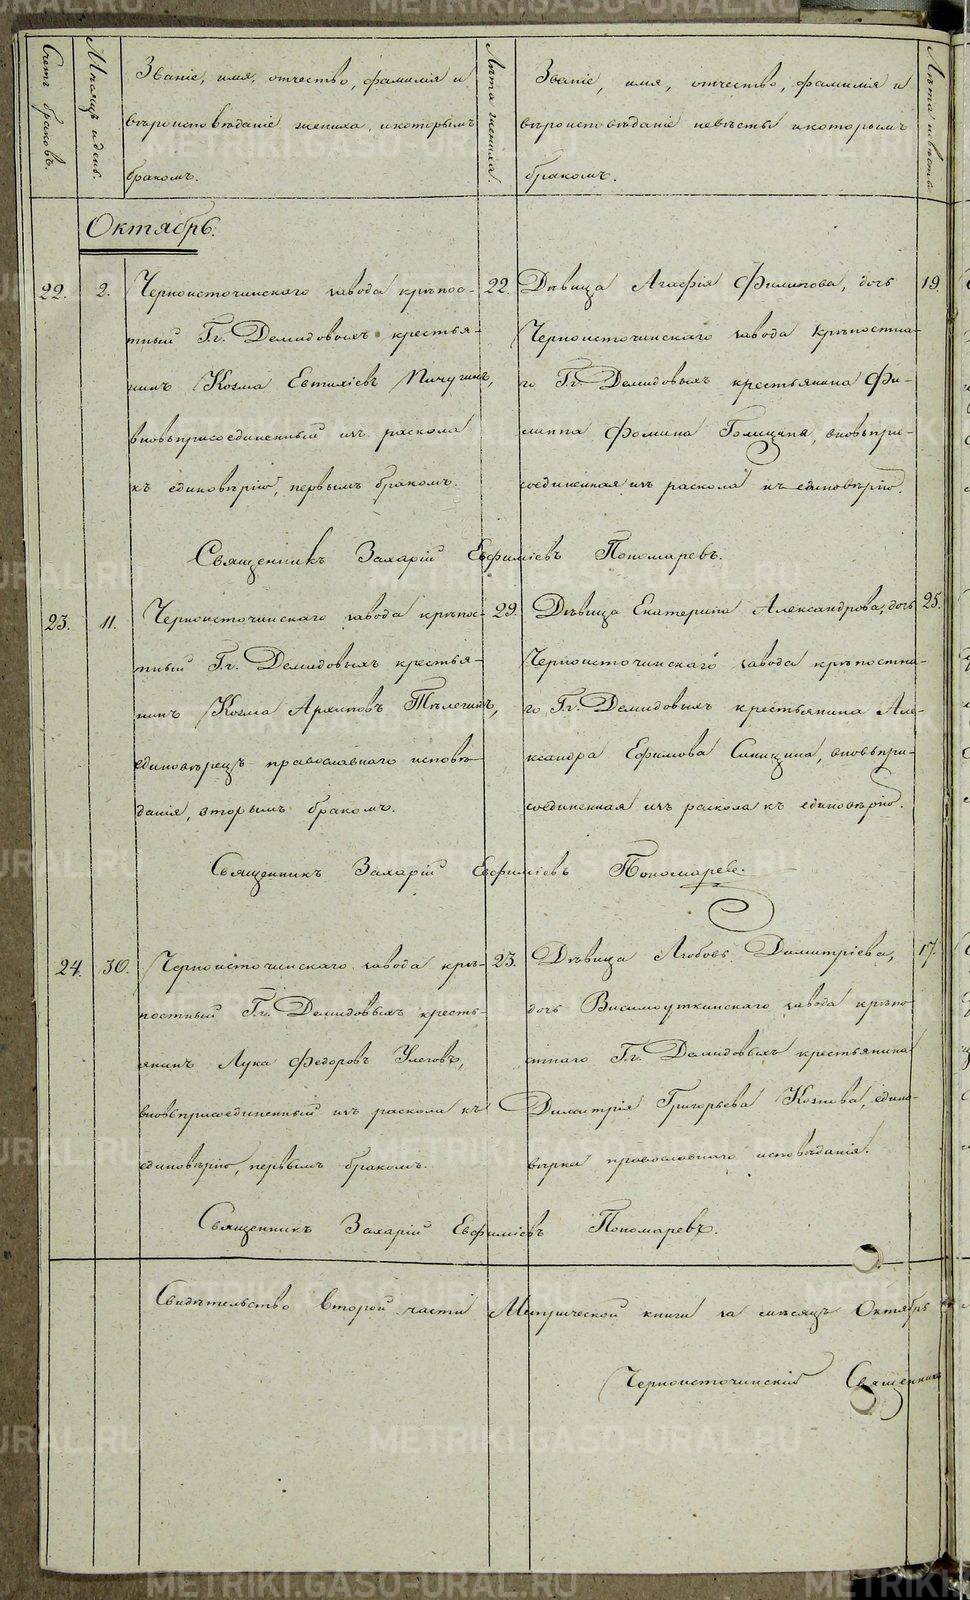 Счетъ браковъ.
Мѣсяцъ и день.
Званіе, имя, отчество, фамилія и
вѣроисповѣданіе жениха, и которымъ
бракомъ.
Лѣта жениха.
Званіе, имя, отчество, фамилія и
вѣроисповѣданіе невѣсты и которымъ
бракомъ.
Лѣта невѣсты
Октябрь.
22.
2.
Черноисточинскаго завода крѣпос-
тный Гг. Демидовыхъ крестья-
нинъ Козма Евтихіевъ Пичугинъ,
вновьприсоединенный изъ раскола
къ единовѣрію, первымъ бракомъ.
22.
Дѣвица Агафія Филипова, дочь
Черноисточинскаго завода крѣпостна-
го Гг. Демидовыхъ крестьянина Фи-
липпа Фомина Голицына, вновьпри-
соединенная изъ раскола къ единовѣрію.
19.
Священникъ Захарій Евфиміевъ Пономаревъ.
23.
11.
Черноисточинскаго завода крѣпос-
тный Гг. Демидовыхъ крестья-
нинъ Козма Архиповъ Тѣлегинъ,
единовѣрецъ православнаго исповѣ-
данія, вторымъ бракомъ.
29.
Дѣвица Екатерина Александрова, дочь
Черноисточинскаго завода крѣпостна-
го Гг. Демидовыхъ крестьянина Але-
ксандра Ефимова Синицина, вновьпри-
соединенная изъ раскола къ единовѣрію.
25.
Священникъ Захарій Евфиміевъ Пономаревъ.
24.
30.
Черноисточинскаго завода крѣ-
постный Гг. Демидовыхъ кресть-
янинъ Лука Федоровъ Улеговъ,
вновьприсоединенный изъ раскола къ
единовѣрію, первымъ бракомъ.
23.
Дѣвица Любовь Димитріева,
дочь Висимоуткинскаго завода крѣпо-
стнаго Гг. Демидовыхъ крестьянина
Димитрія Григорьева Козлова, едино-
вѣрка православнаго исповѣданія.
17.
Священникъ Захарій Евфиміевъ Пономаревъ.
Свидѣтельство второй части Метрической книги за мѣсяцъ Октябрь
Черноисточинскій Священникъ
METRIKI.GASO-URAL.RU